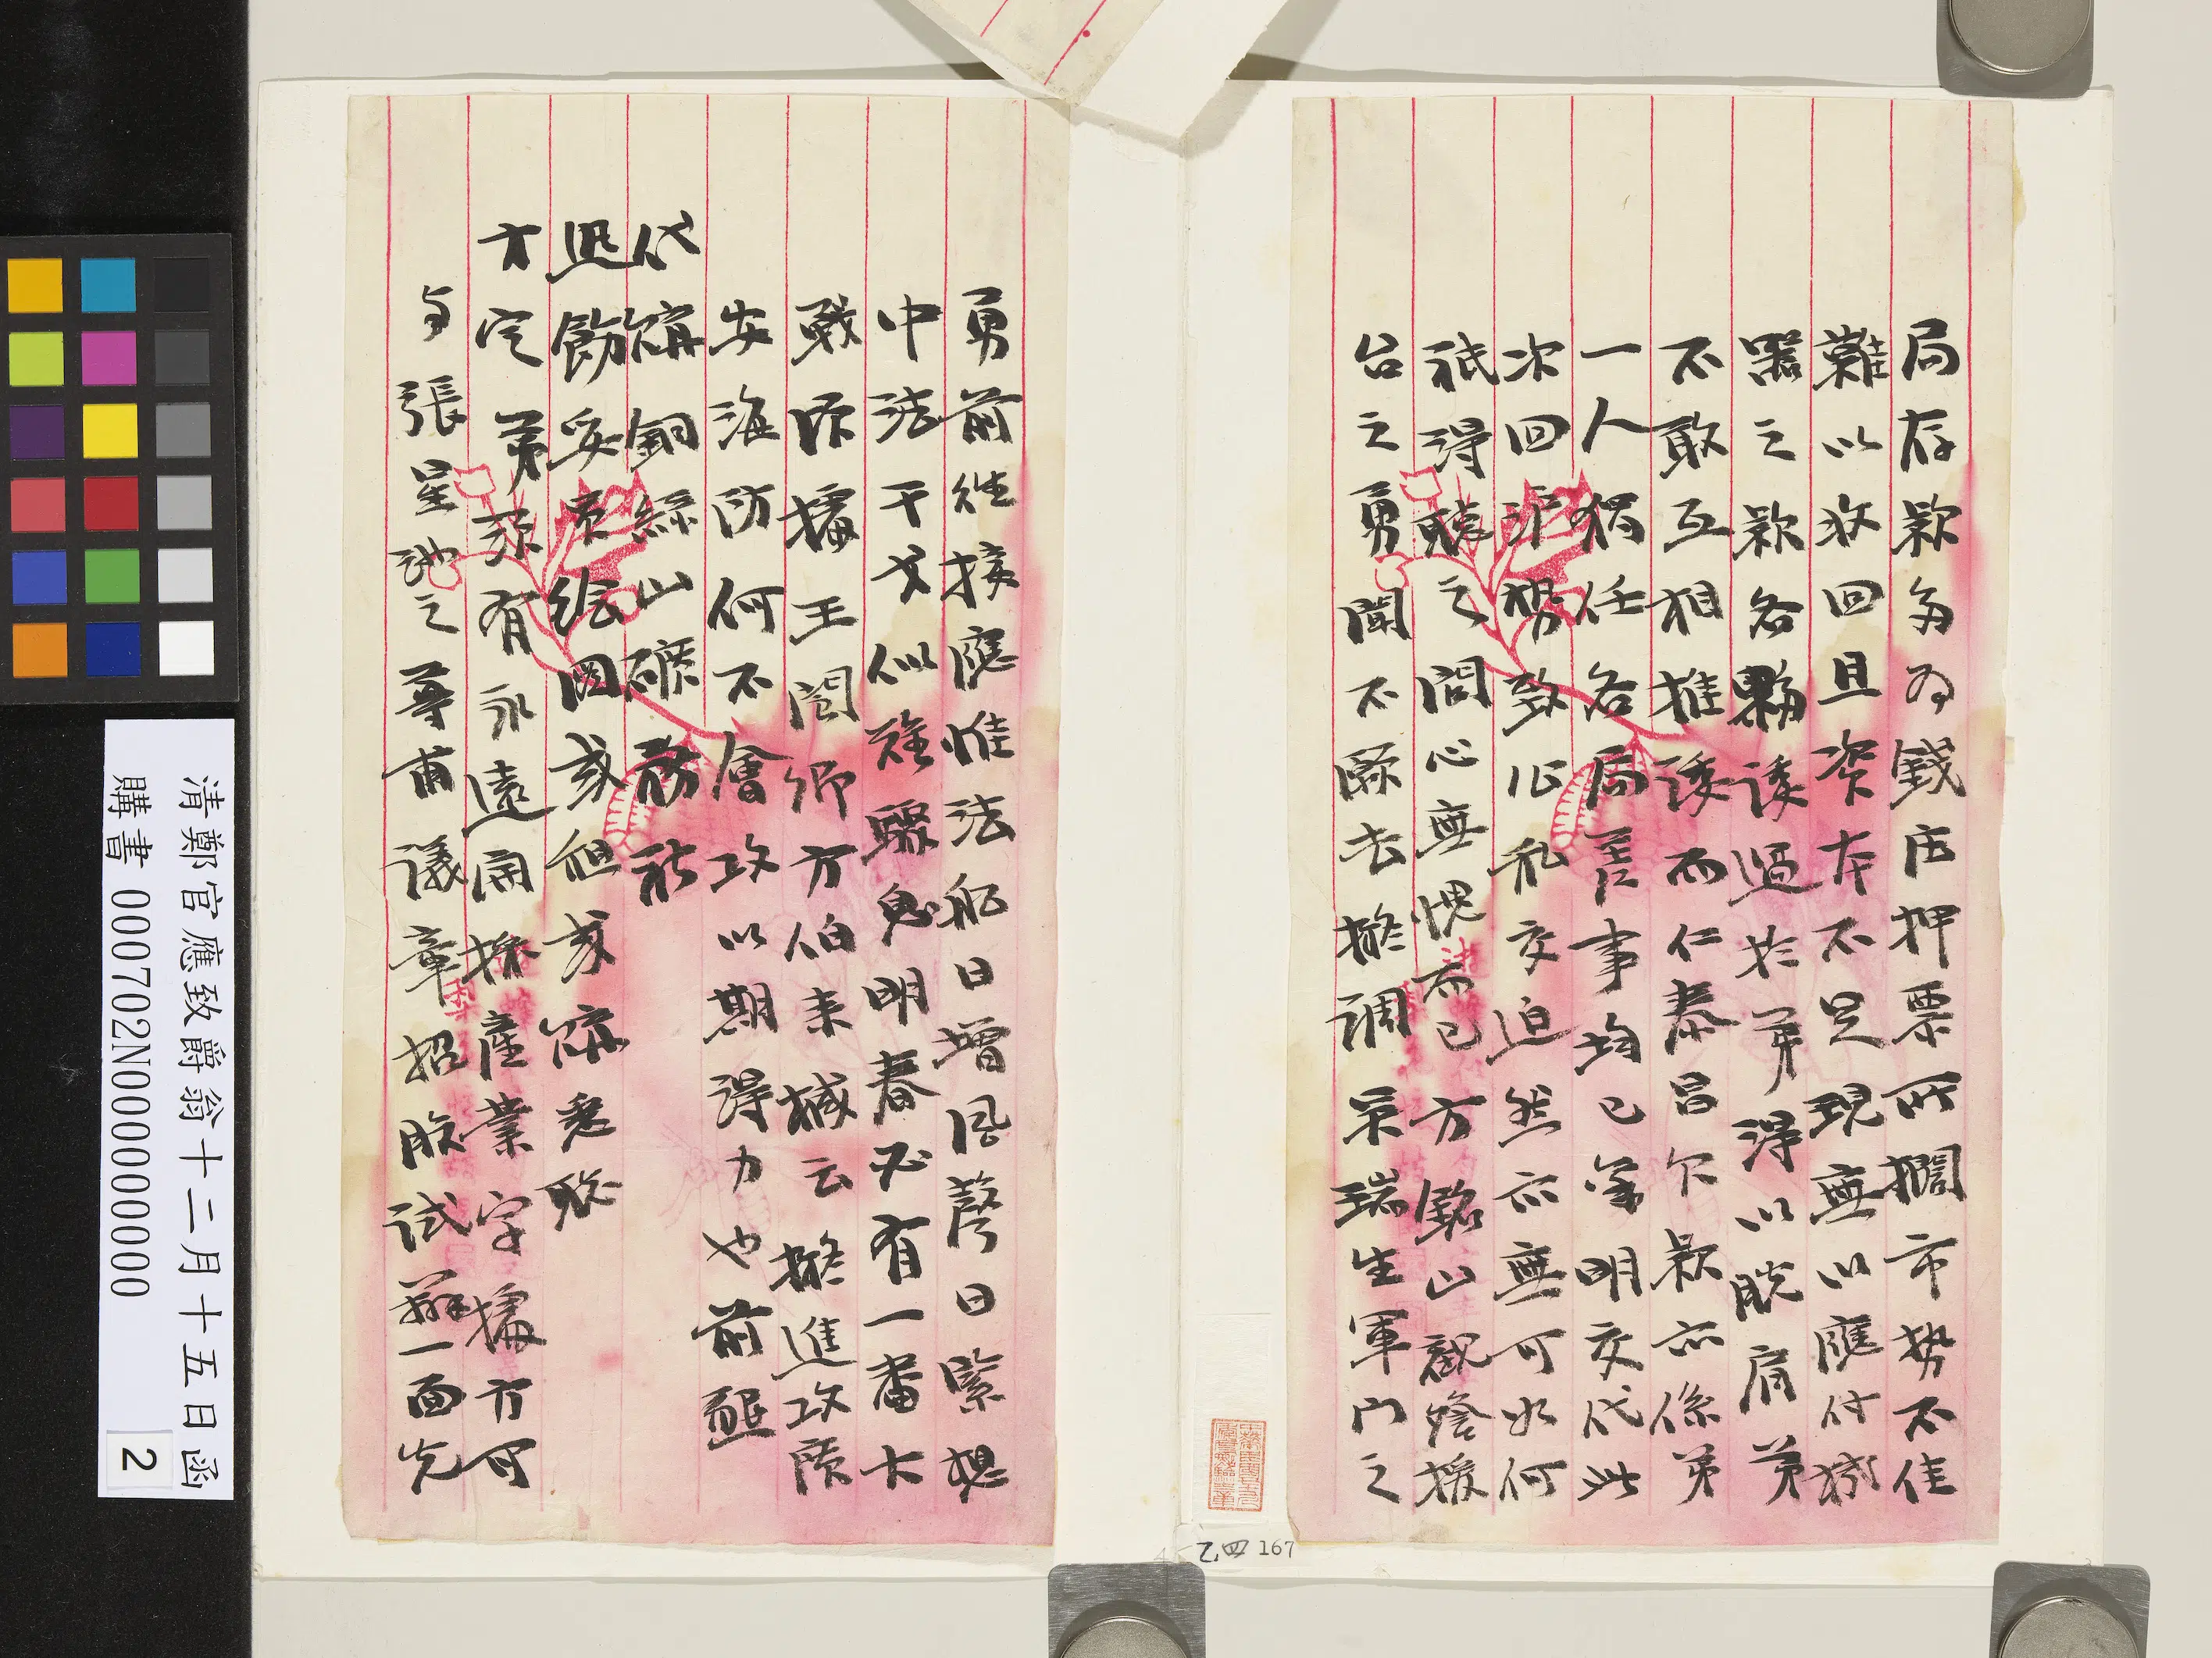 局存款多為錢店押票所擱市勢不佳
難以收回且資本不足現無以應付機
器之款各夥諉過於弟得以脫肩弟
不敢互相推諉而仁泰昌欠款亦係弟
一人獨任各局差事均已算明交代此
次回滬勢致公私交迫然亦無可如何
祇得聽之問心無愧而已方銘山觀詧援
台之勇聞不歸去擬調吳瑞生軍門之
勇前往接應惟法船日增風聲日緊想
中法干戈似難驟息明春必有一番大
戰昨據王閬卿方伯來緘云擬進攻廣
安海防何不會攻以期得力也前懇
代稟銅絲山礦務社
迅飭妥員繪圖或租或稟悉聽
方定弟須有永遠開採產業字據方可
与張星池之尊甫議章招股試辦一面先
清鄭官應致爵翁十二月十五日函
購書 000702N000000000
2
乙.四 167